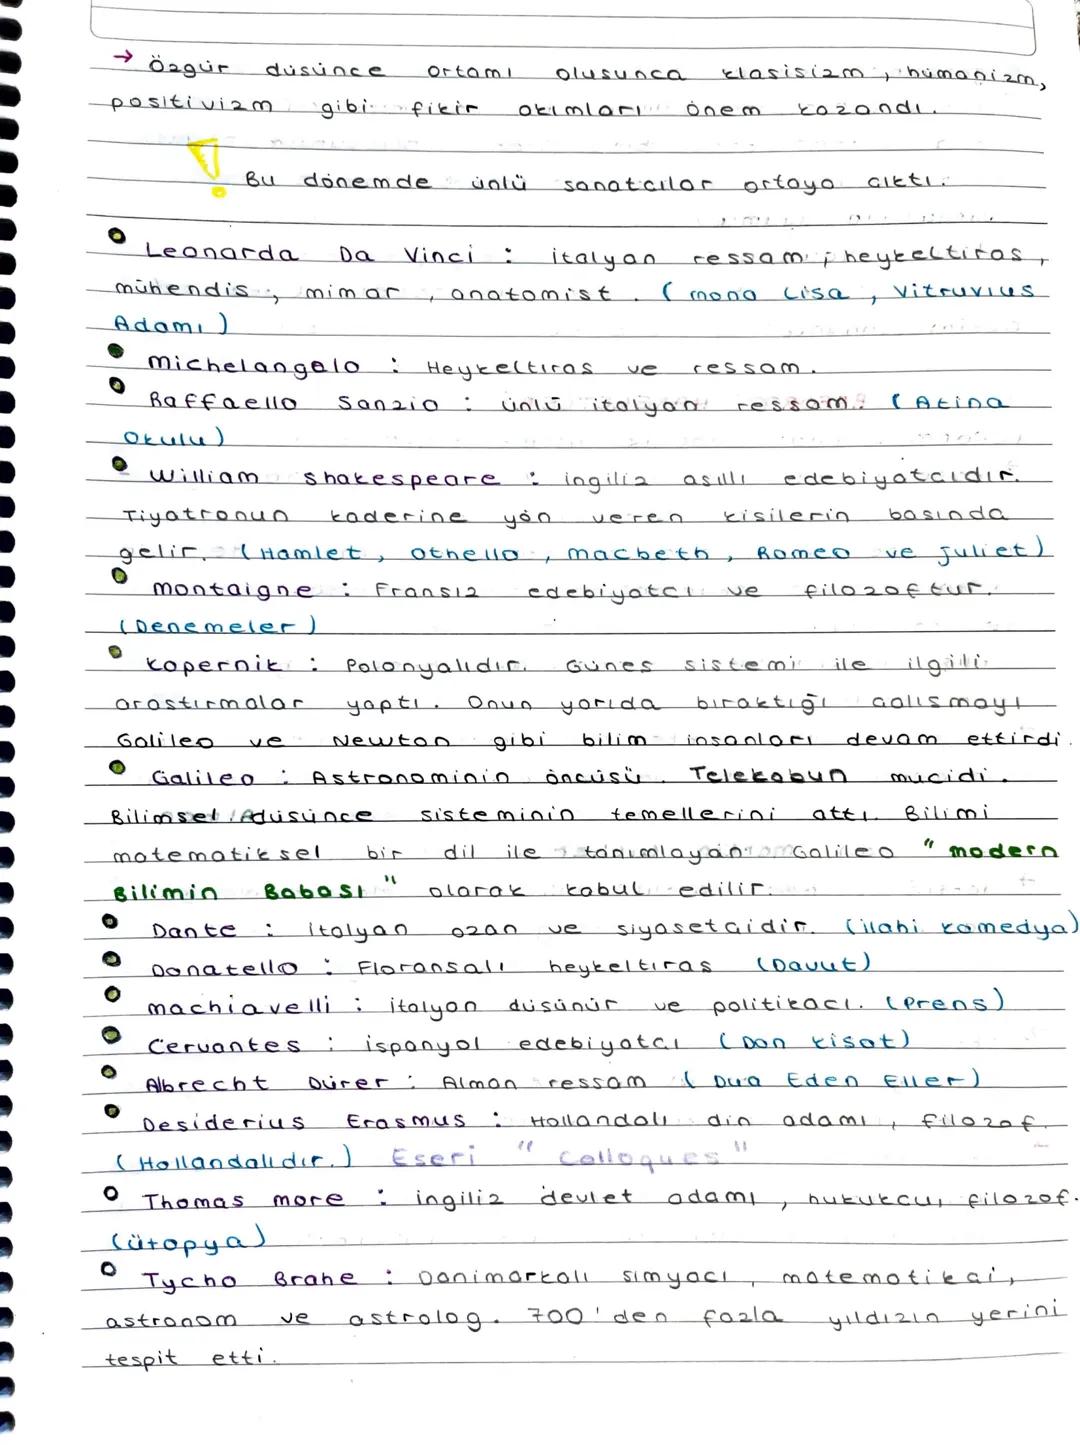 → Özgür düsünce ortamı olusunca klasisizm, hümanizm,
positivizm gibi fikir akımları önem kazandı.
! Bu dönemde ünlü sanatcılar ortaya cıktı.
Leonarda Da Vinci : italyan ressam, heykeltıras,
mühendis, mimar, anatomist. (mona Lisa, Vitruvius
Adamı)
michelangelo : Heykeltıras ve ressam.
Raffaello Sanzio : ünlü italyan ressam. (Atina
Okulu)
William shakespeare : ingiliz asıllı edebiyatcıdır.
Tiyatronun kaderine yön veren kisilerin basında
gelir. (Hamlet, Othello, macbeth, Romeo ve juliet)
montaigne : Fransız edebiyatcı ve filozoftur.
(Denemeler)
kopernik : Polonyalıdır. Günes sistemi ile ilgili
arastırmalar yaptı. Onun yarıda bıraktığı calısmayı
Galileo ve Newton gibi bilim insanları devam ettirdi.
Galileo : Astronominin öncüsü. Teleskobun mucidi.
Bilimsel düsünce sisteminin temellerini attı. Bilimi
matematiksel bir dil ile tanımlayan Galileo "modern
Bilimin Babası" olarak kabul edilir.
Dante : italyan ozan ve siyasetcidir. (ilahi komedya)
Donatello : Floransalı heykeltıras (Davut)
machiavelli : italyan düsünür ve politikacı. (Prens)
Cervantes : ispanyol edebiyatcı (Don kisot)
Albrecht Dürer : Alman ressam (Dua Eden Eller)
Desiderius Erasmus : Hollandalı din adamı, filozof.
(Hollandalıdır.) Eseri "Colloques"
Thomas more : ingiliz devlet adamı, hukukcu, filozof.
(ütopya)
Tycho Brahe : Danimarkalı simyacı, matematikci,
astronom ve astrolog. 700'den fazla yıldızın yerini
tespit etti.